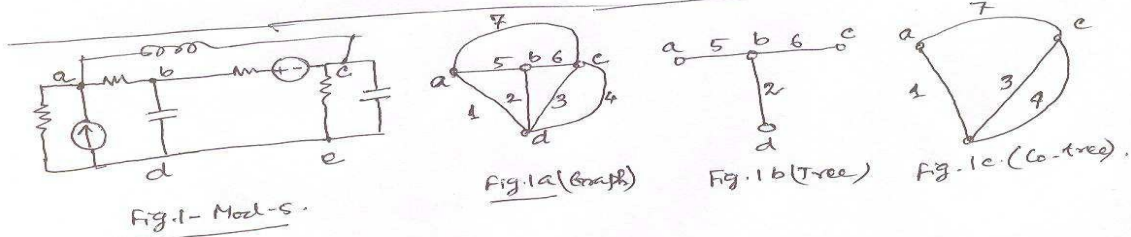 a b c
d e
Fig.1- Mod-5.
7
a 5 b 6 c
1 2 3 4
d
Fig.1a (Graph)
a 5 b 6 c
2
d
Fig.1b (Tree)
7
a c
1 3 4
Fig.1c. (Co-tree).